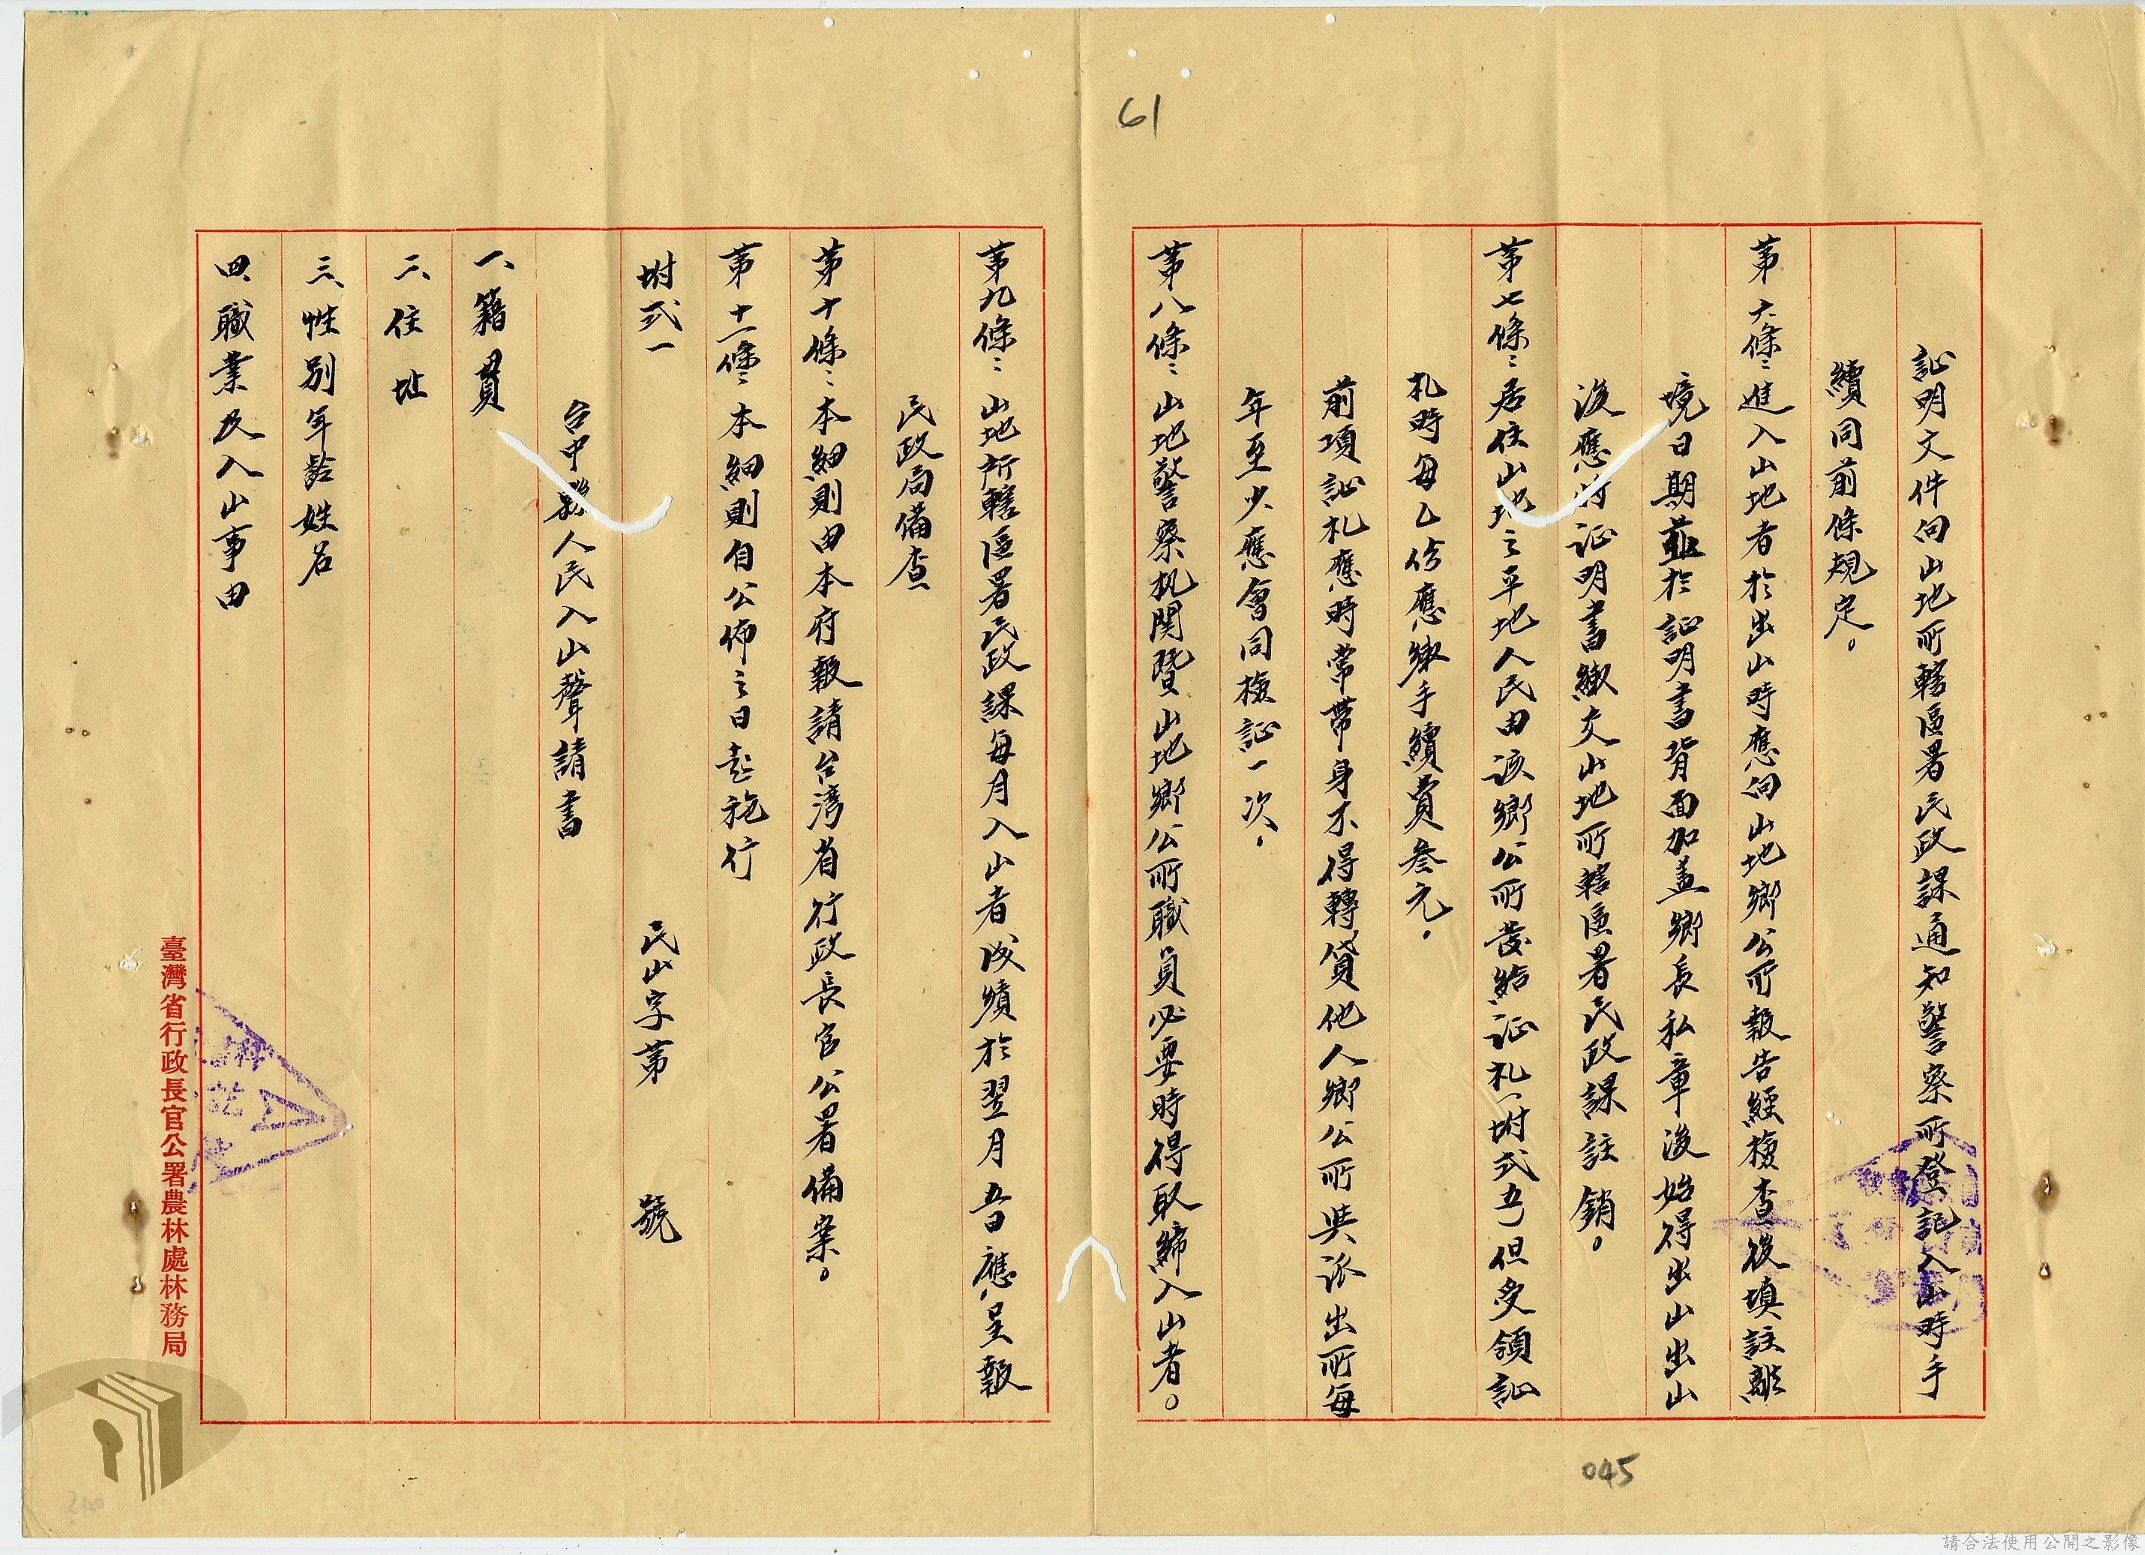 61
証明文件向山地所轄區署民政課通知警察所登記入山時手
續同前條規定。
第六條：進入山地者於出山時應向山地鄉公所報告經檢查後填註離
境日期並於証明書背面加盖鄉長私章後始得出山出山
後應将证明書繳交山地所轄區署民政課註銷。
第七條：居住山地之平地人民由该鄉公所發給证札（附式五）但受領証
札時每乙份應繳手續費叁元。
前項証札應時常帶身不得轉貸他人鄉公所與派出所每
年至少應會同檢証一次。
第八條：山地警察机関暨山地鄉公所職員必要時得取締入山者。
第九條：山地所轄區署民政課每月入山者成績於翌月五日應呈報
民政局備查
第十條：本細則由本府報請台湾省行政長官公署備案。
第十一條：本細則自公佈之日起施行
附式一
民山字第　　號
台中縣人民入山聲請書
一、籍貫
二、住址
三、性別年齡姓名
四、職業及入山事由
臺灣省行政長官公署農林處林務局
045
請合法使用公開之影像